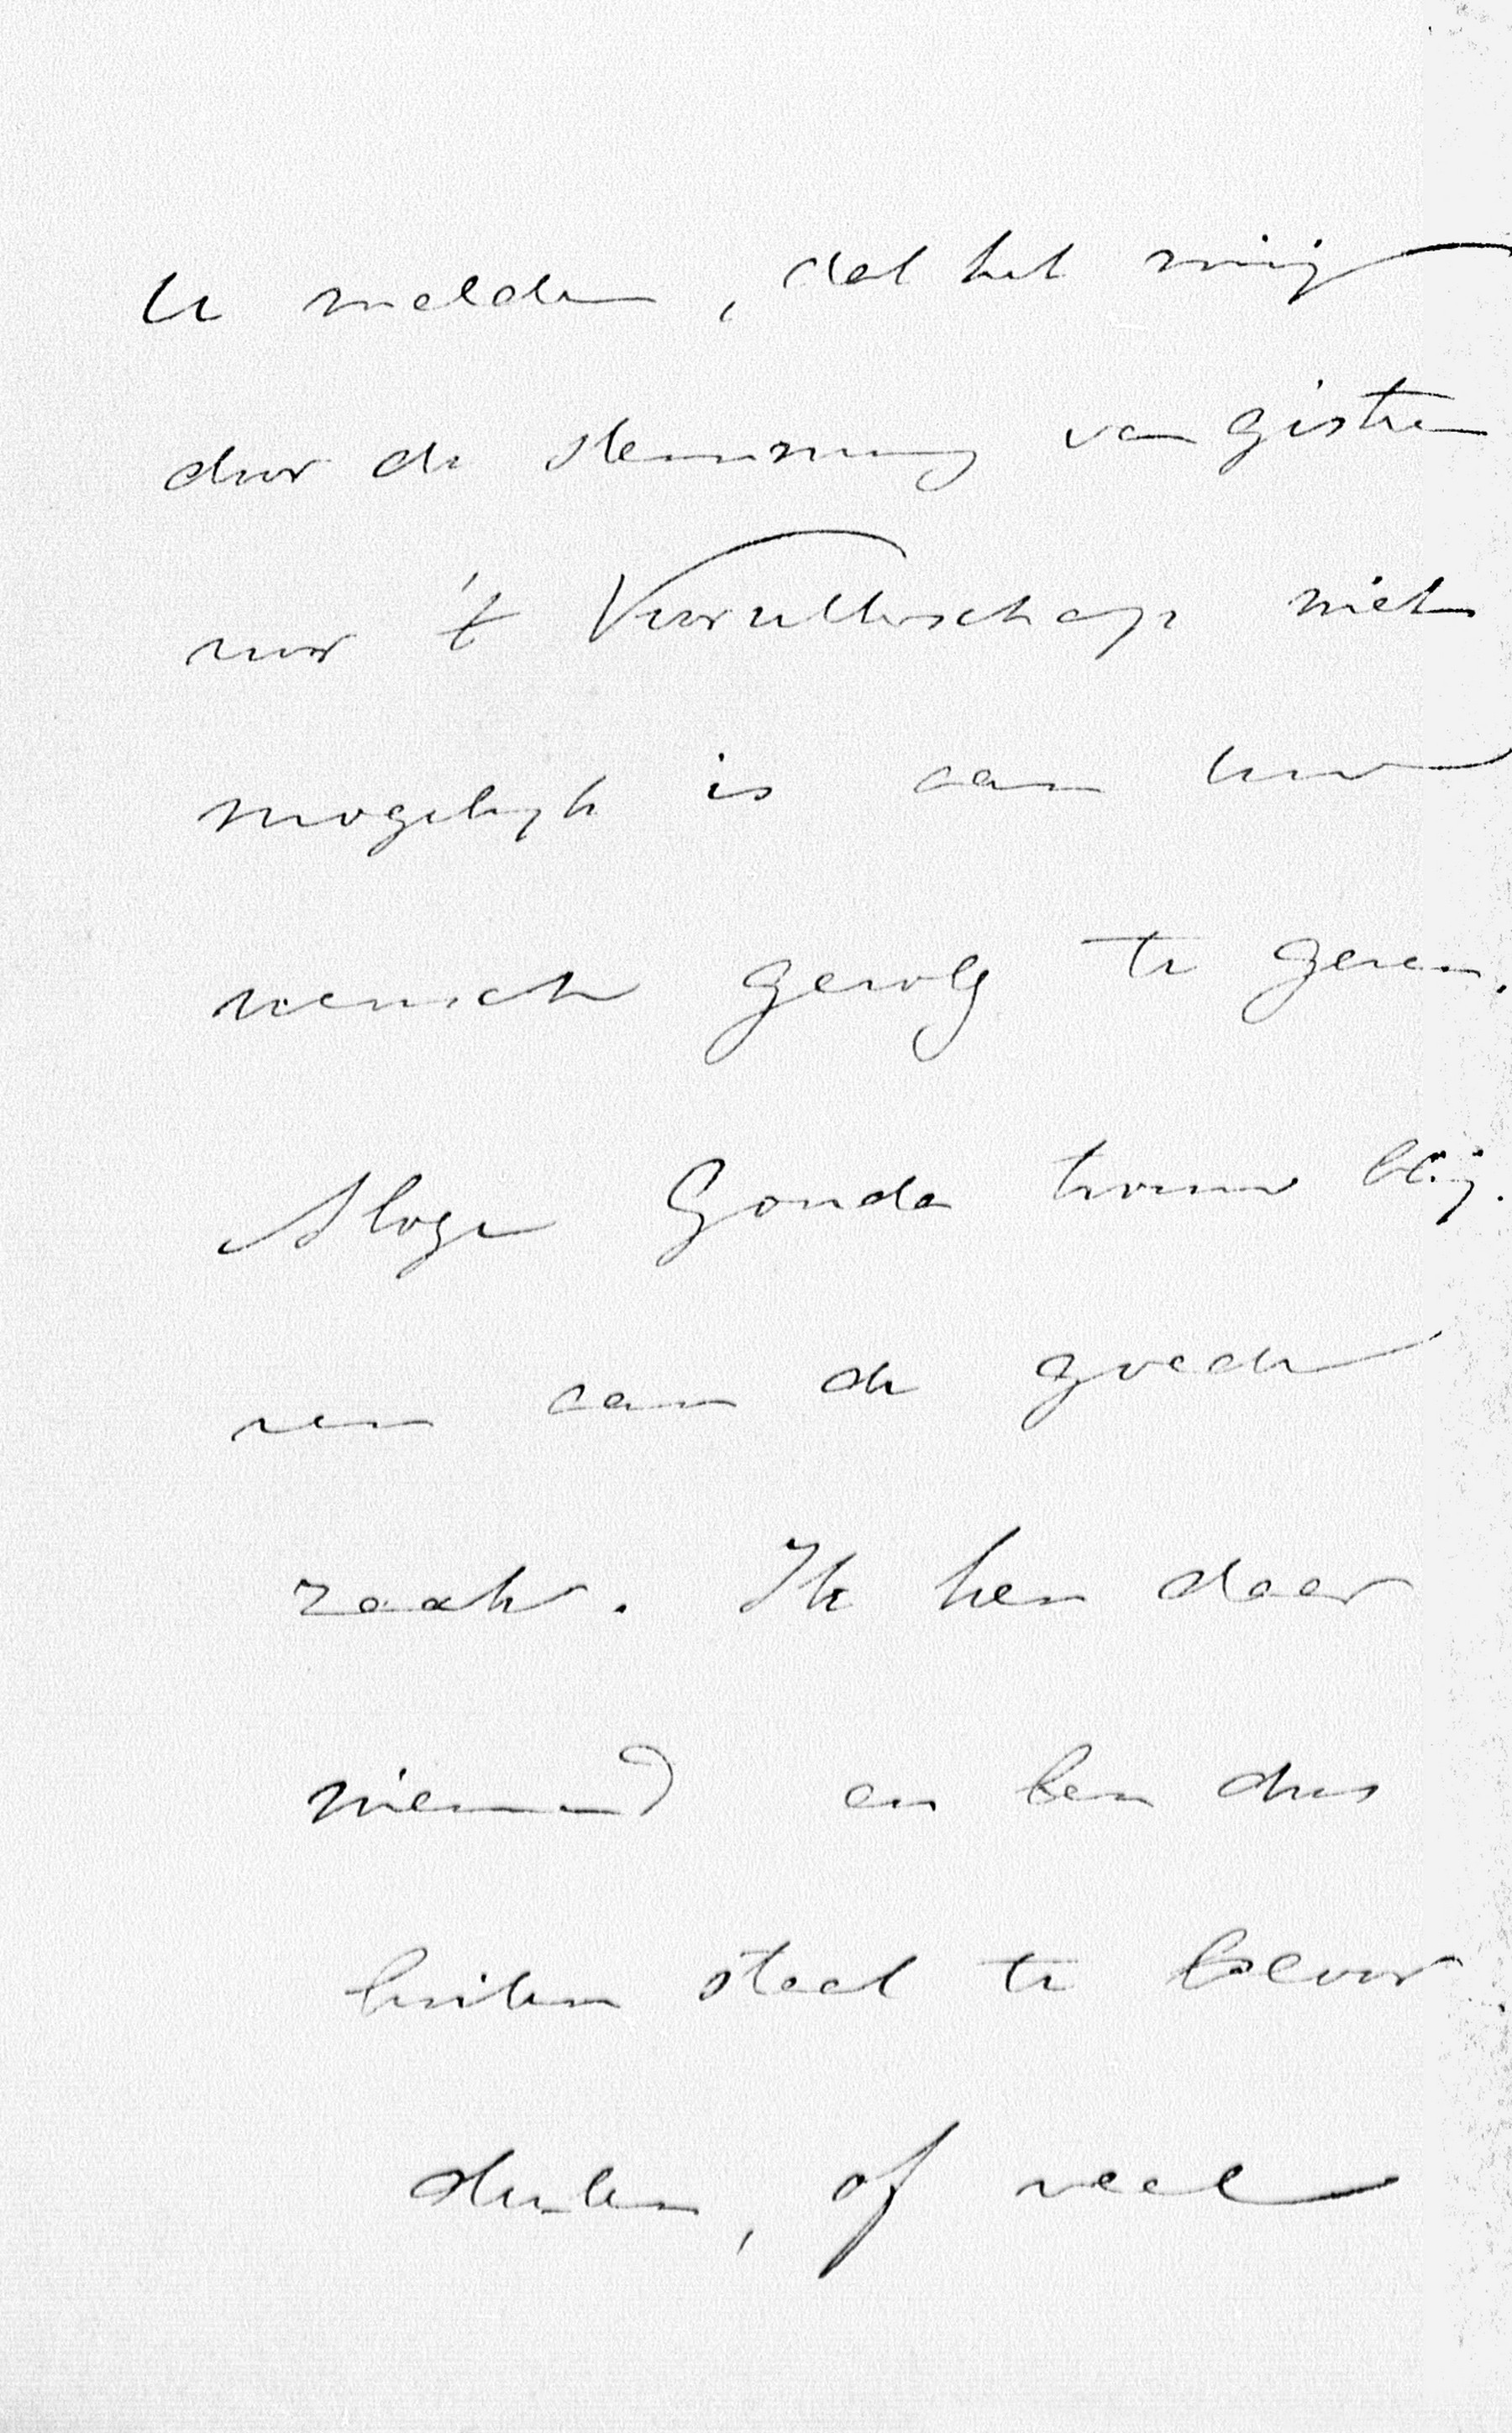 U melden, dat het mij
door de stemming van gistren
voor 't Voorzitterschap niet
mogelijk is aan uw
wensch gevolg te geven.
Moge Gouda trouw blij-
ven aan de goede
zaak. Ik ken daar
niemand en ben dus
buiten staat te beoor-
deelen, of veel